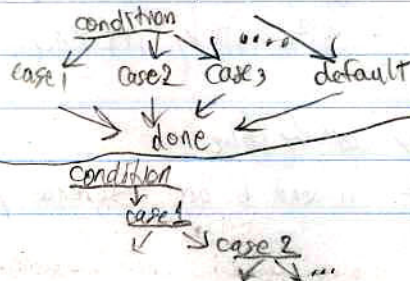 condition
case 1 case 2 case 3 .... default
done
condition
case 1
case 2
...